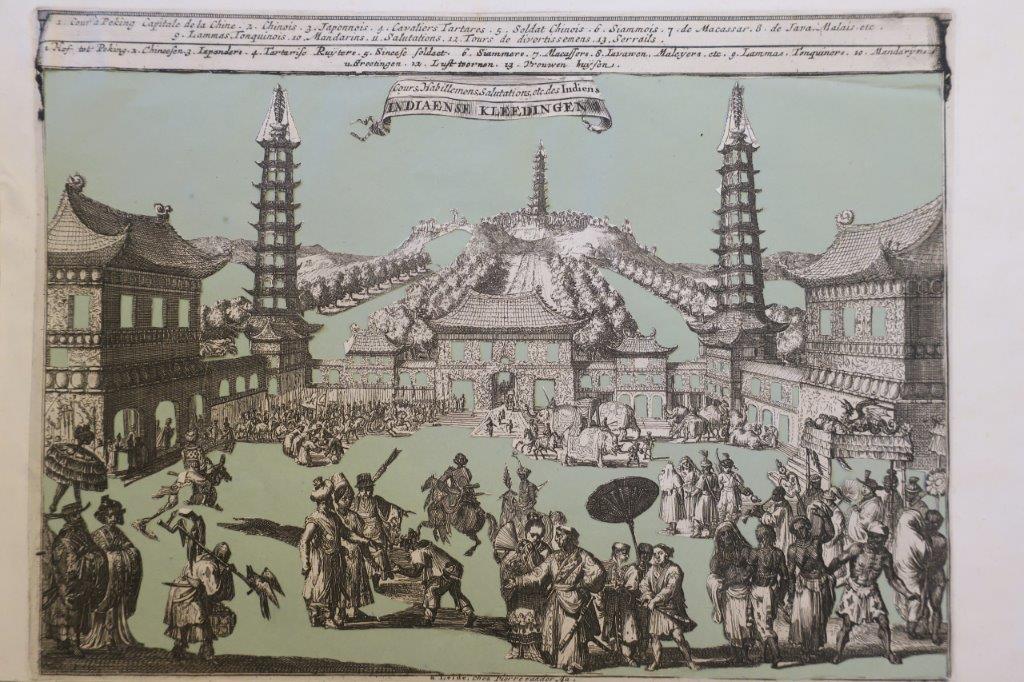 1. Cour à Peking Capitale de la Chine. 2. Chinois. 3. Japonnois. 4. Cavaliers Tartares. 5. Soldat Chinois. 6. Siammois. 7. de Macassar. 8. de Java. Malais etc.
9. Lammas, Tonquinois. 10. Mandarins. 11. Salutations. 12. Tours de divertissemens. 13. Serrails.
1. Hof tot Peking. 2. Chineesen. 3. Iapanders. 4. Tartarise Ruyters. 5. Sineese soldaet. 6. Siammers. 7. Macassers. 8. Iavawen. Maleyers, etc. 9. Lammas. Tonquiners. 10. Mandaryns.
11. Groetingen. 12. Lust toornen. 13. Vrouwen huysen.
Cours, Habillemens, Salutations, etc. des Indiens
INDIAENSE KLEEDINGEN
a Leide, Chez Pierre vander Aa.